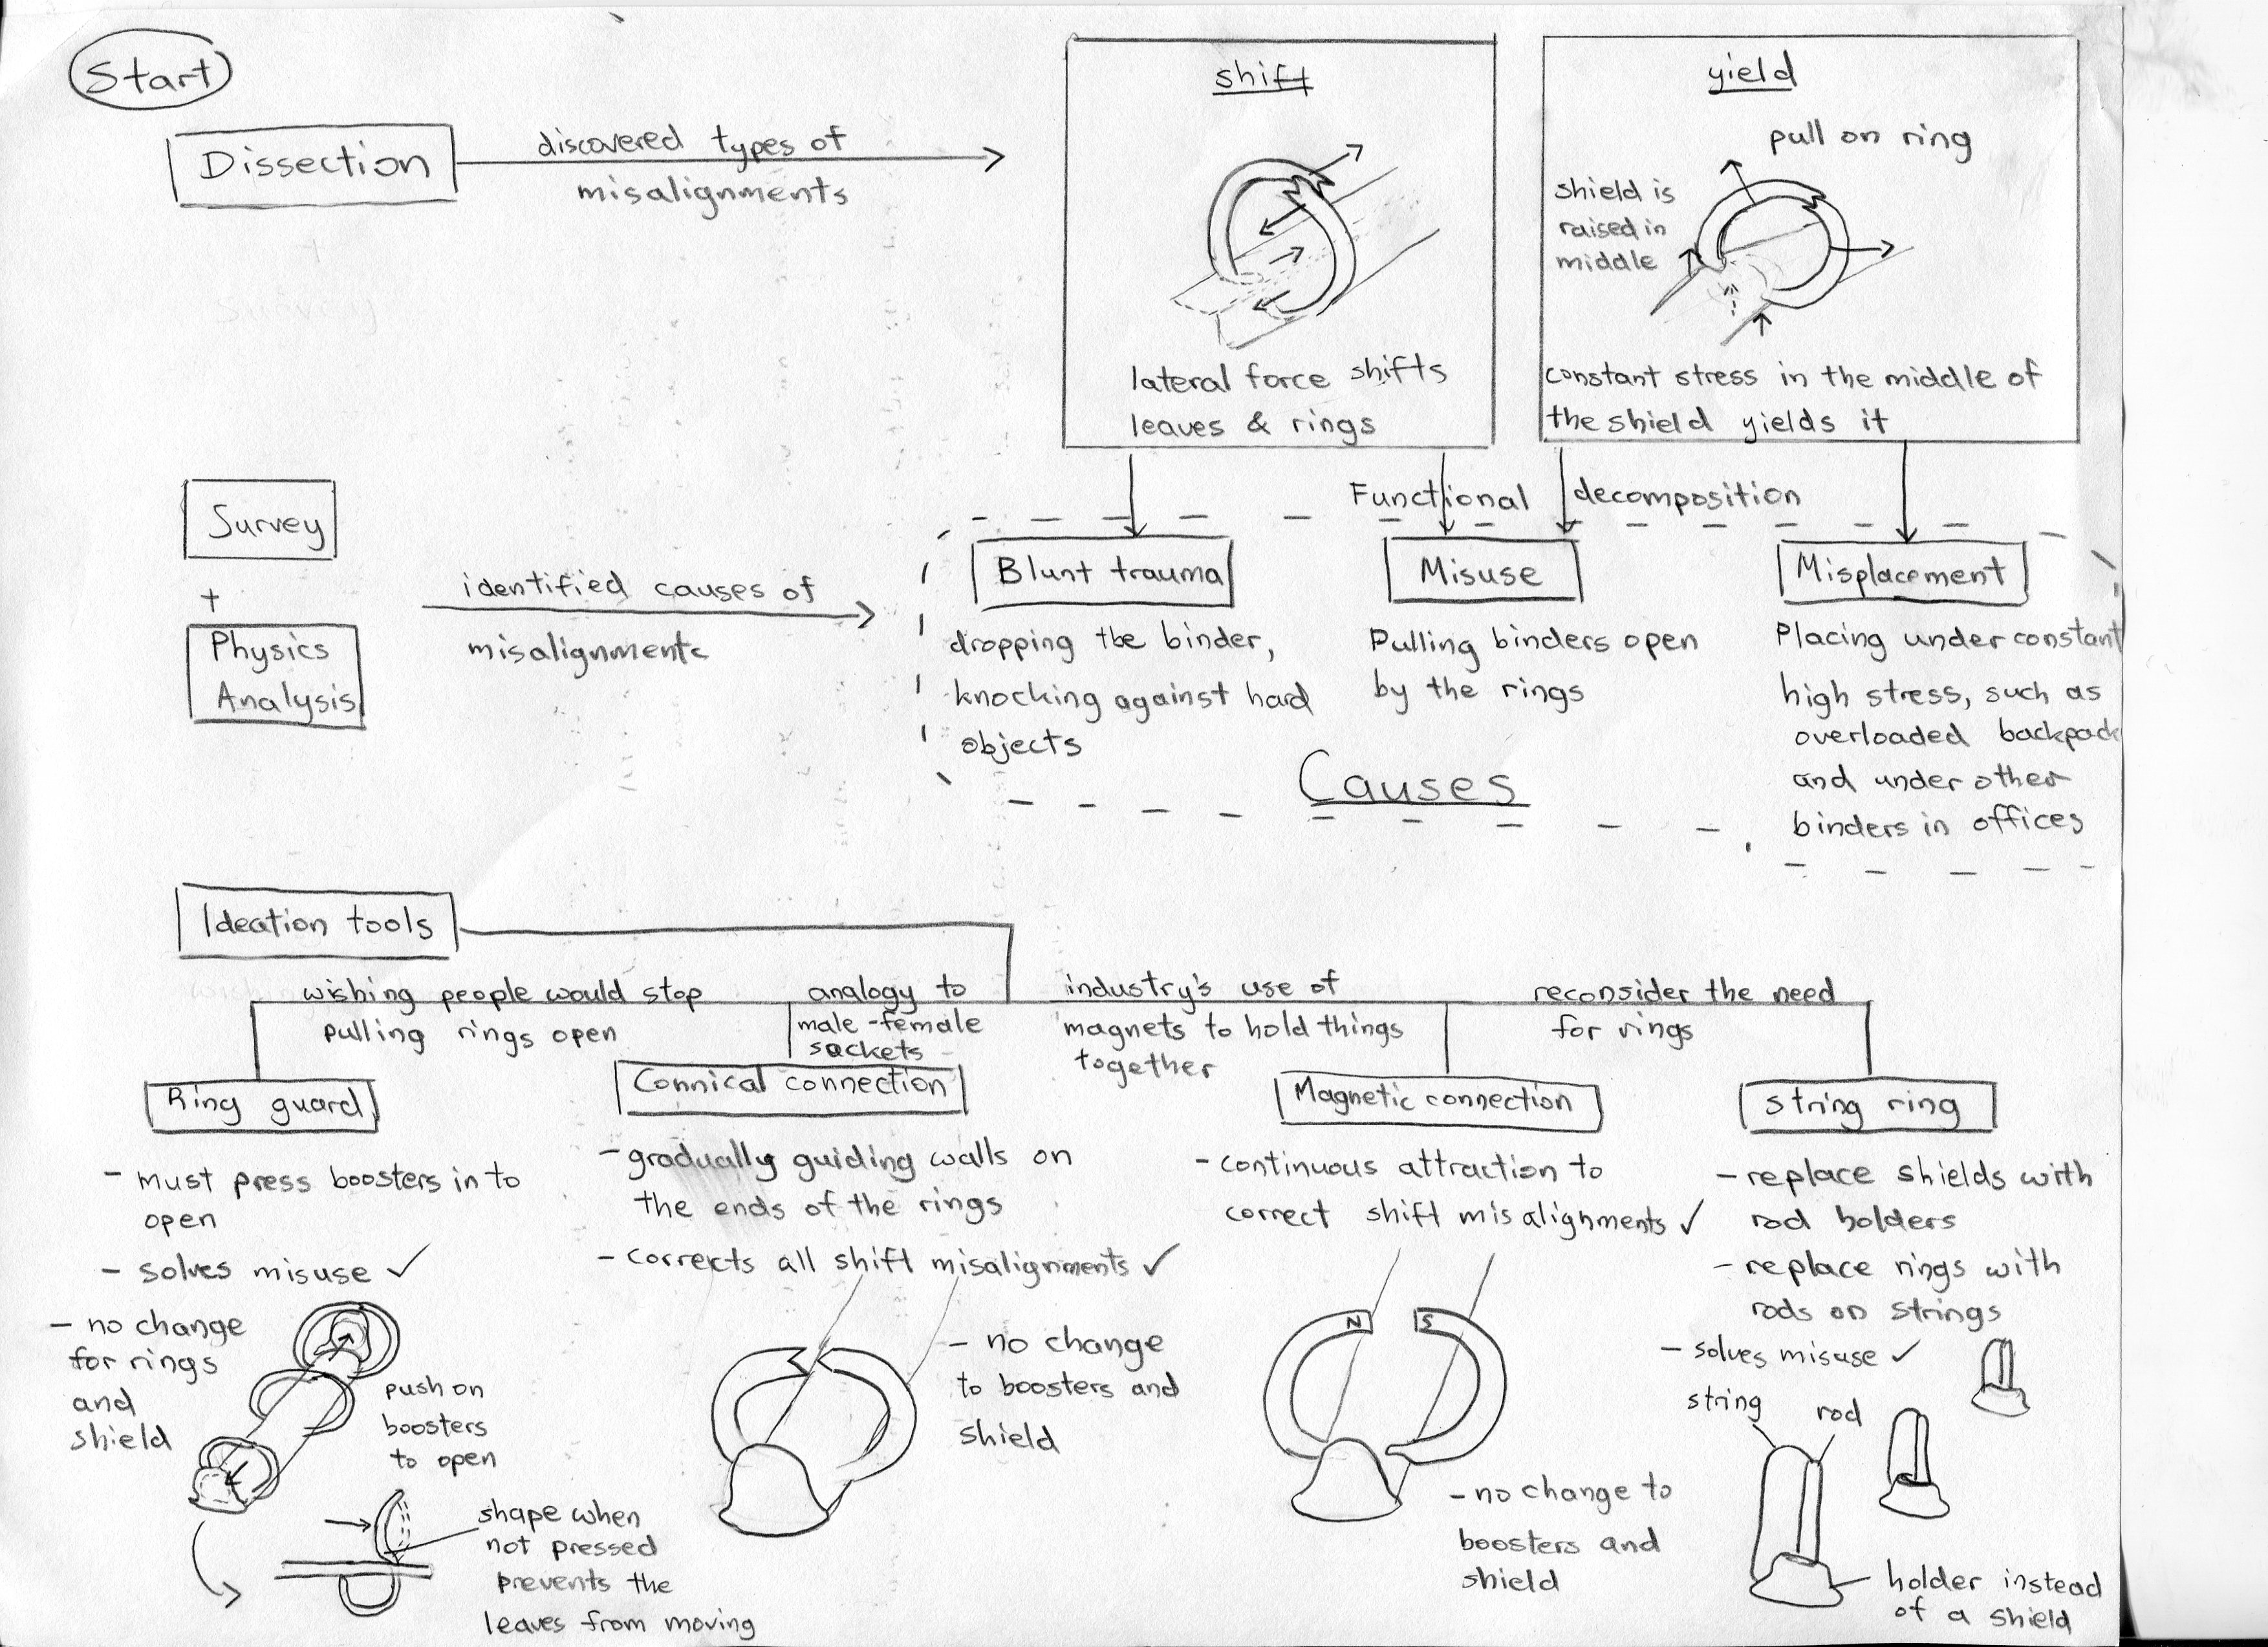 Start
Dissection
discovered types of
misalignments
shift
lateral force shifts
leaves & rings
yield
pull on ring
shield is
raised in
middle
constant stress in the middle of
the shield yields it
Survey
+
Physics
Analysis
identified causes of
misalignments
Functional decomposition
Blunt trauma
dropping the binder,
knocking against hard
objects
Misuse
Pulling binders open
by the rings
Misplacement
Placing under constant
high stress, such as
overloaded backpack
and under other
binders in offices
Causes
Ideation tools
wishing people would stop
pulling rings open
analogy to
male-female
sockets
industry's use of
magnets to hold things
together
reconsider the need
for rings
Ring guard
- must press boosters in to
open
- solves misuse ✓
- no change
for rings
and
shield
push on
boosters
to open
shape when
not pressed
prevents the
leaves from moving
Connical connection
- gradually guiding walls on
the ends of the rings
- corrects all shift misalignments ✓
- no change
to boosters and
shield
Magnetic connection
- continuous attraction to
correct shift misalignments ✓
N S
- no change to
boosters and
shield
string ring
- replace shields with
rod holders
- replace rings with
rods on strings
- solves misuse ✓
string
rod
holder instead
of a shield